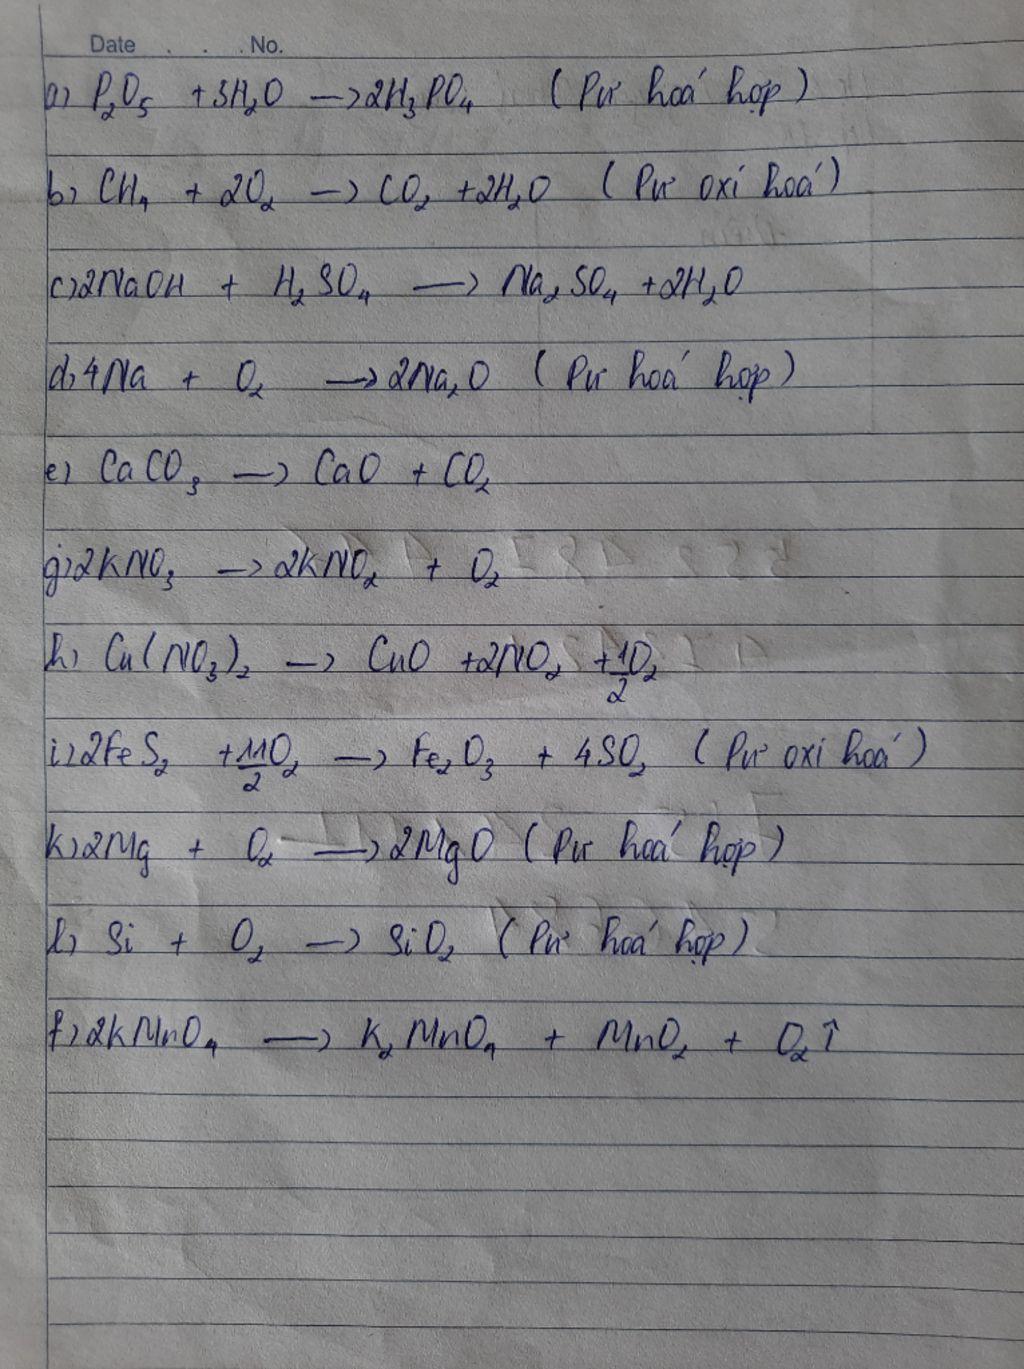 Date . . . No.
a) P₂O₅ + 3H₂O → 2H₃PO₄ (Pư hoá hợp)
b) CH₄ + 2O₂ → CO₂ + 2H₂O (Pư oxi hoá)
c) 2NaOH + H₂SO₄ → Na₂SO₄ + 2H₂O
d) 4Na + O₂ → 2Na₂O (Pư hoá hợp)
e) CaCO₃ → CaO + CO₂
g) 2KNO₃ → 2KNO₂ + O₂
h) Cu(NO₃)₂ → CuO + 2NO₂ + 1/2 O₂
i) 2FeS₂ + 11/2 O₂ → Fe₂O₃ + 4SO₂ (Pư oxi hoá)
k) 2Mg + O₂ → 2MgO (Pư hoá hợp)
l) Si + O₂ → SiO₂ (Pư hoá hợp)
f) 2KMnO₄ → K₂MnO₄ + MnO₂ + O₂↑